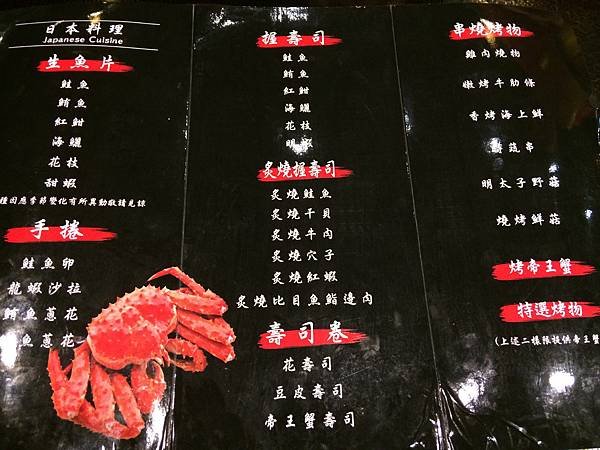 日本料理
Japanese Cuisine
生魚片
鮭魚
鮪魚
紅魽
海鱺
花枝
甜蝦
種因應季節變化有所異動敬請見諒
手捲
鮭魚卵
龍蝦沙拉
鮪魚蔥花
魚蔥花
握壽司
鮭魚
鮪魚
紅魽
海鱺
花枝
明蝦
炙燒握壽司
炙燒鮭魚
炙燒干貝
炙燒牛肉
炙燒穴子
炙燒紅蝦
炙燒比目魚鰭邊肉
壽司卷
花壽司
豆皮壽司
帝王蟹壽司
串燒烤物
雞肉燒物
嫩烤牛肋條
香烤海上鮮
蔬菇串
明太子野菇
燒烤鮮菇
烤帝王蟹
特選烤物
(上述二樣限提供帝王蟹